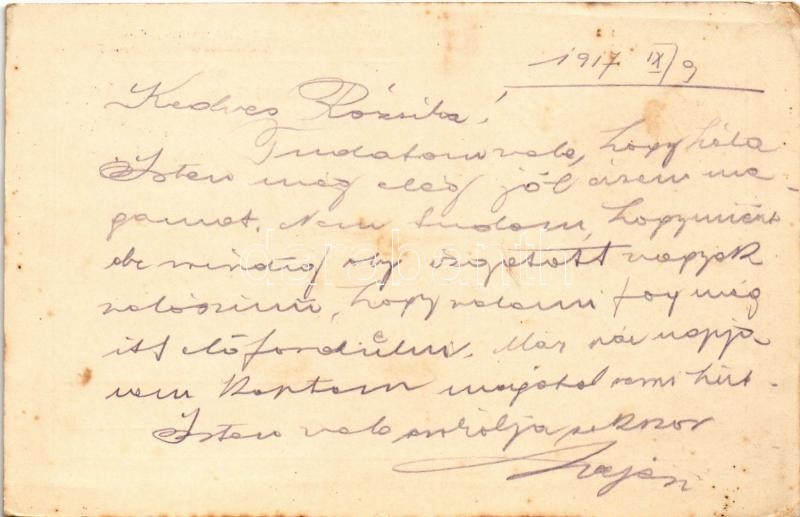 1917 IX/9
Kedves Rózsika!
Tudatom vele, hogy hála
Isten még elég jól érzem ma-
gamat. Nem tudom, hogy miért
de mindig oly izgatott vagyok
valószinü, hogy valami fog még
itt előfordulni. Már pár napja
nem kaptam magától semi hirt.
Isten vele csókolja sokszor